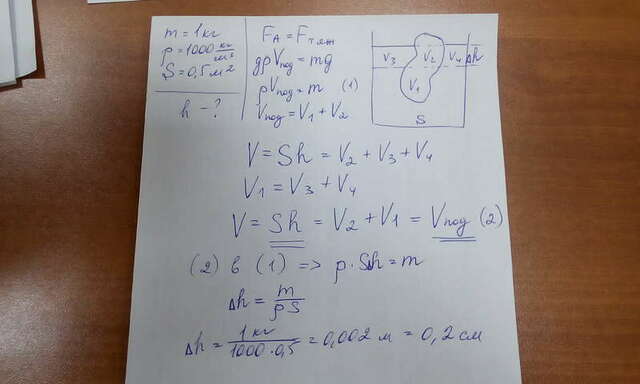 m = 1 кг
ρ = 1000 кг/м³
S = 0,5 м²
h - ?
F_A = F_тяж
gρV_под = mg
ρV_под = m (1)
V_под = V₁ + V₂
V₃ V₂ V₄ Δh
V₁
S
V = Sh = V₂ + V₃ + V₄
V₁ = V₃ + V₄
V = Sh = V₂ + V₁ = V_под (2)
(2) в (1) => ρ · SΔh = m
Δh = m/ρS
Δh = 1 кг/1000·0,5 = 0,002 м = 0,2 см